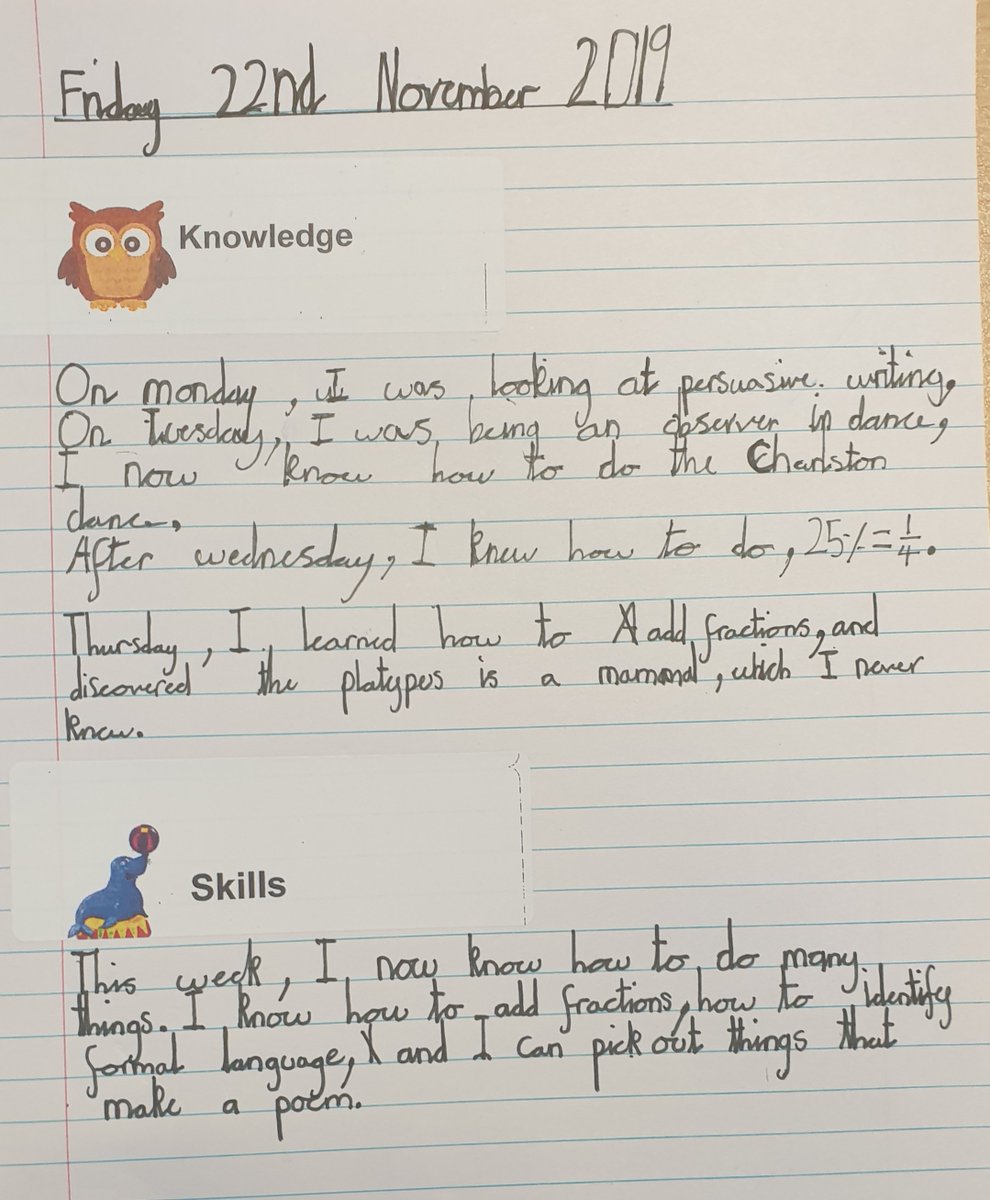 Friday 22nd November 2019
Knowledge
On monday, I was looking at persuasive. writing.
On Tuesday, I was being an observer in dance,
I now know how to do the Charlston
dance.
After wednesday, I knew how to do, 25%=1/4.
Thursday, I learned how to add fractions, and
discovered the platypos is a mammal, which I never
knew.
Skills
This week, I now know how to do many
things. I know how to add fractions, how to identify
formal language, and I can pick out things that
make a poem.